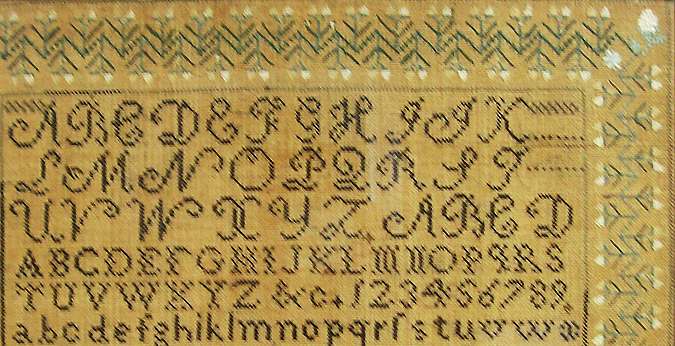 ABCDEFGHIJK
LMNOPQRST
UVWXYZABCD
ABCDEFGHIJKLMNOPQRS
TUVWXYZ &c. 123456789.
abcdefghiklmnopqrſstuvw